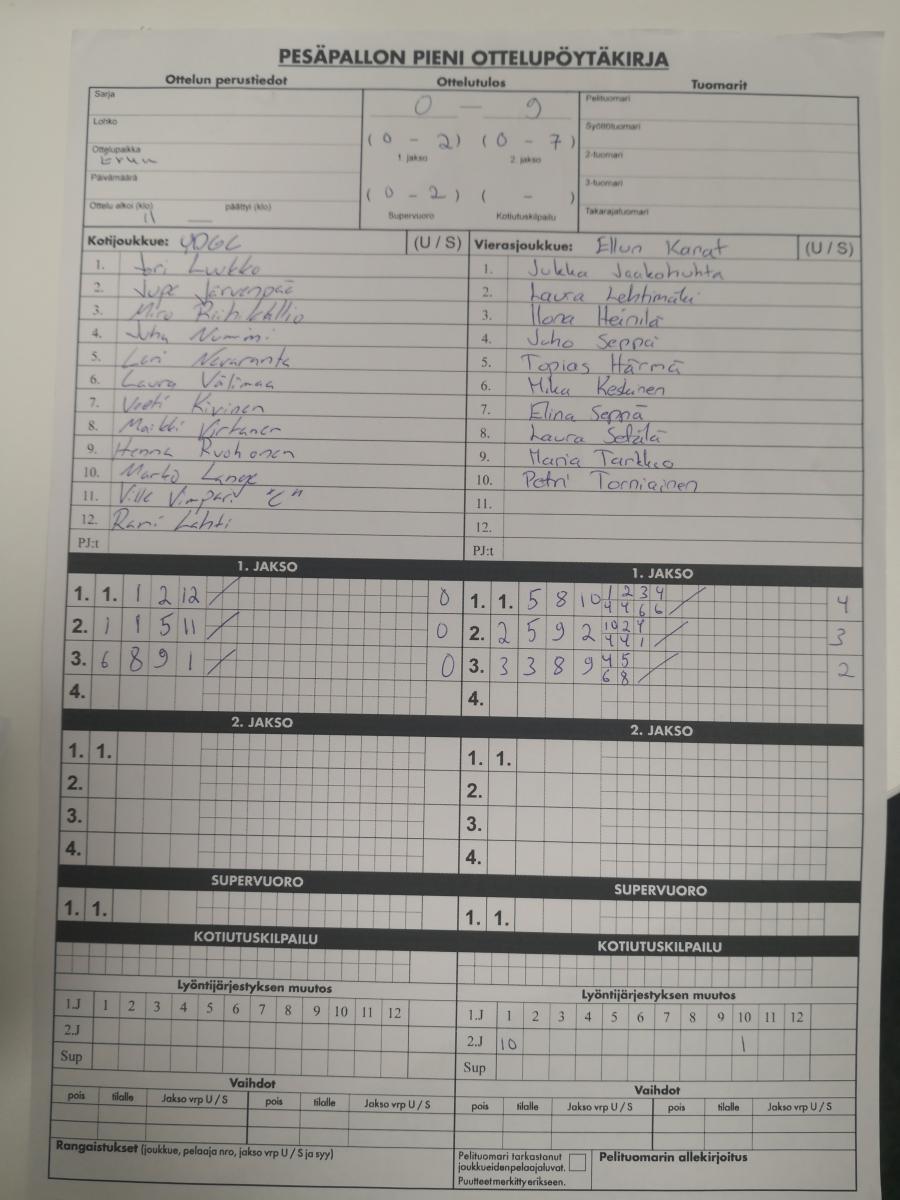 PESÄPALLON PIENI OTTELUPÖYTÄKIRJA
Ottelun perustiedot Ottelutulos Tuomarit
Sarja
Lohko
Ottelupaikka
Päivämäärä
Ottelu alkoi (klo) 11 päättyi (klo)
0 — 9
(0 - 2) (0 - 7)
1. jakso 2. jakso
(0 - 2) ( - )
Supervuoro Kotiutuskilpailu
Pelituomari
Syöttötuomari
2-tuomari
3-tuomari
Takarajatuomari
Kotijoukkue: YOGC (U / S)
1. Jori Luukko
2. Jupe Järvenpää
3. Miro Riihikallio
4. Juha Nummi
5. Lari Nevaranta
6. Laura Välimaa
7. Veeti Kivinen
8. Maikki Virtanen
9. Henna Ruohonen
10. Marko Lange
11. Ville Vimpari "C"
12. Rami Lahti
PJ:t
Vierasjoukkue: Ellun Kanat (U / S)
1. Jukka Jaakohuhta
2. Laura Lehtimäki
3. Ilona Heinilä
4. Juho Seppä
5. Topias Härmä
6. Mika Keskinen
7. Elina Seppä
8. Laura Setälä
9. Maria Tarkko
10. Petri Torniainen
11.
12.
PJ:t
1. JAKSO
1. 1. 1 2 12 / 0
2. 1 1 5 11 / 0
3. 6 8 9 1 / 0
4.
1. JAKSO
1. 1. 5 8 10 1 2 3 4 / 4
4 4 6 6
2. 2 5 9 2 10 2 4 / 3
4 4 1
3. 3 3 8 9 4 5 / 2
6 8
4.
2. JAKSO
1. 1.
2.
3.
4.
2. JAKSO
1. 1.
2.
3.
4.
SUPERVUORO
1. 1.
SUPERVUORO
1. 1.
KOTIUTUSKILPAILU
KOTIUTUSKILPAILU
Lyöntijärjestyksen muutos
1.J 1 2 3 4 5 6 7 8 9 10 11 12
2.J
Sup
Lyöntijärjestyksen muutos
1.J 1 2 3 4 5 6 7 8 9 10 11 12
2.J 10 1
Sup
Vaihdot
pois tilalle Jakso vrp U / S pois tilalle Jakso vrp U / S
Vaihdot
pois tilalle Jakso vrp U / S pois tilalle Jakso vrp U / S
Rangaistukset (joukkue, pelaaja nro, jakso vrp U / S ja syy)
Pelituomari tarkastanut
joukkueidenpelaajaluvat.
Puutteet merkitty erikseen.
Pelituomarin allekirjoitus